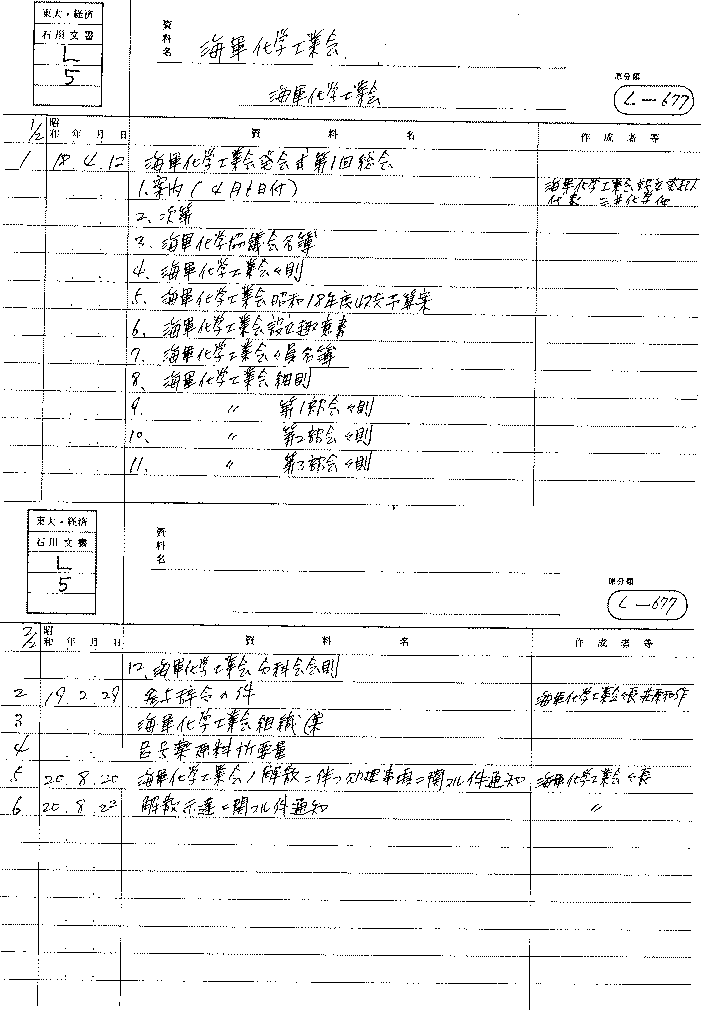 東大・経済
石川文書
L
5
資料名
海軍化学工業会
海軍化学工業会
原分類
L-677
1/2 昭和 年 月 日 資料名 作成者等
1 18 4 12 海軍化学工業会発会式第1回総会
1. 案内(4月1日付) 海軍化学工業会設立発起人
代表
2. 次第
3. 海軍化学協議会名簿
4. 海軍化学工業会々則
5. 海軍化学工業会昭和18年度収支予算案
6. 海軍化学工業会設立趣意書
7. 海軍化学工業会々員名簿
8. 海軍化学工業会細則
9. 〃 第1部会々則
10. 〃 第2部会々則
11. 〃 第3部会々則
東大・経済
石川文書
L
5
資料名
原分類
L-677
2/2 昭和 年 月 日 資料名 作成者等
12. 海軍化学工業会分科会会則
2 19 2 29 の件 海軍化学工業会々長
3 海軍化学工業会組織(案)
4 原料所要量
5 20 8 20 海軍化学工業会ノ解散ニ伴フ処理事項ニ関スル件通知 海軍化学工業会々長
6 20 8 22 解散示達ニ関スル件通知 〃